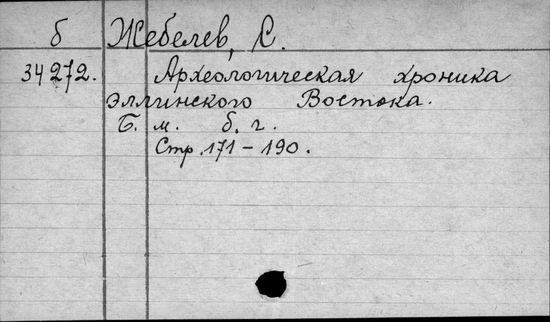 б Жебелев, С.
34272. Археологическая хроника
эллинского Востока.
Б. м. б. г.
Стр. 171-190.